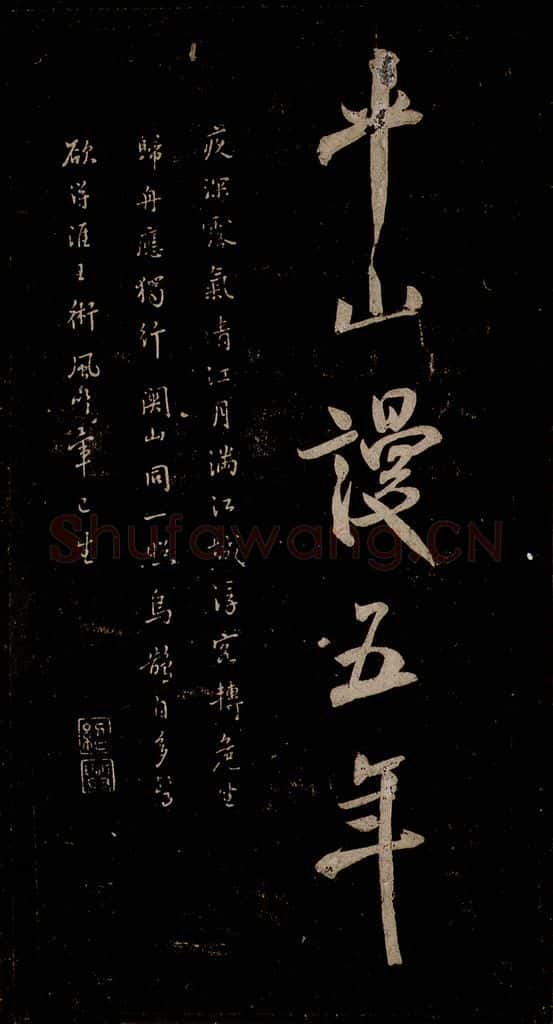 平山謾五年
夜深露氣清江月滿江城浮客轉危坐
歸舟應獨行關山同一照烏鵲自多驚
欲得淮王術風吹暈已生
Shufawang.CN